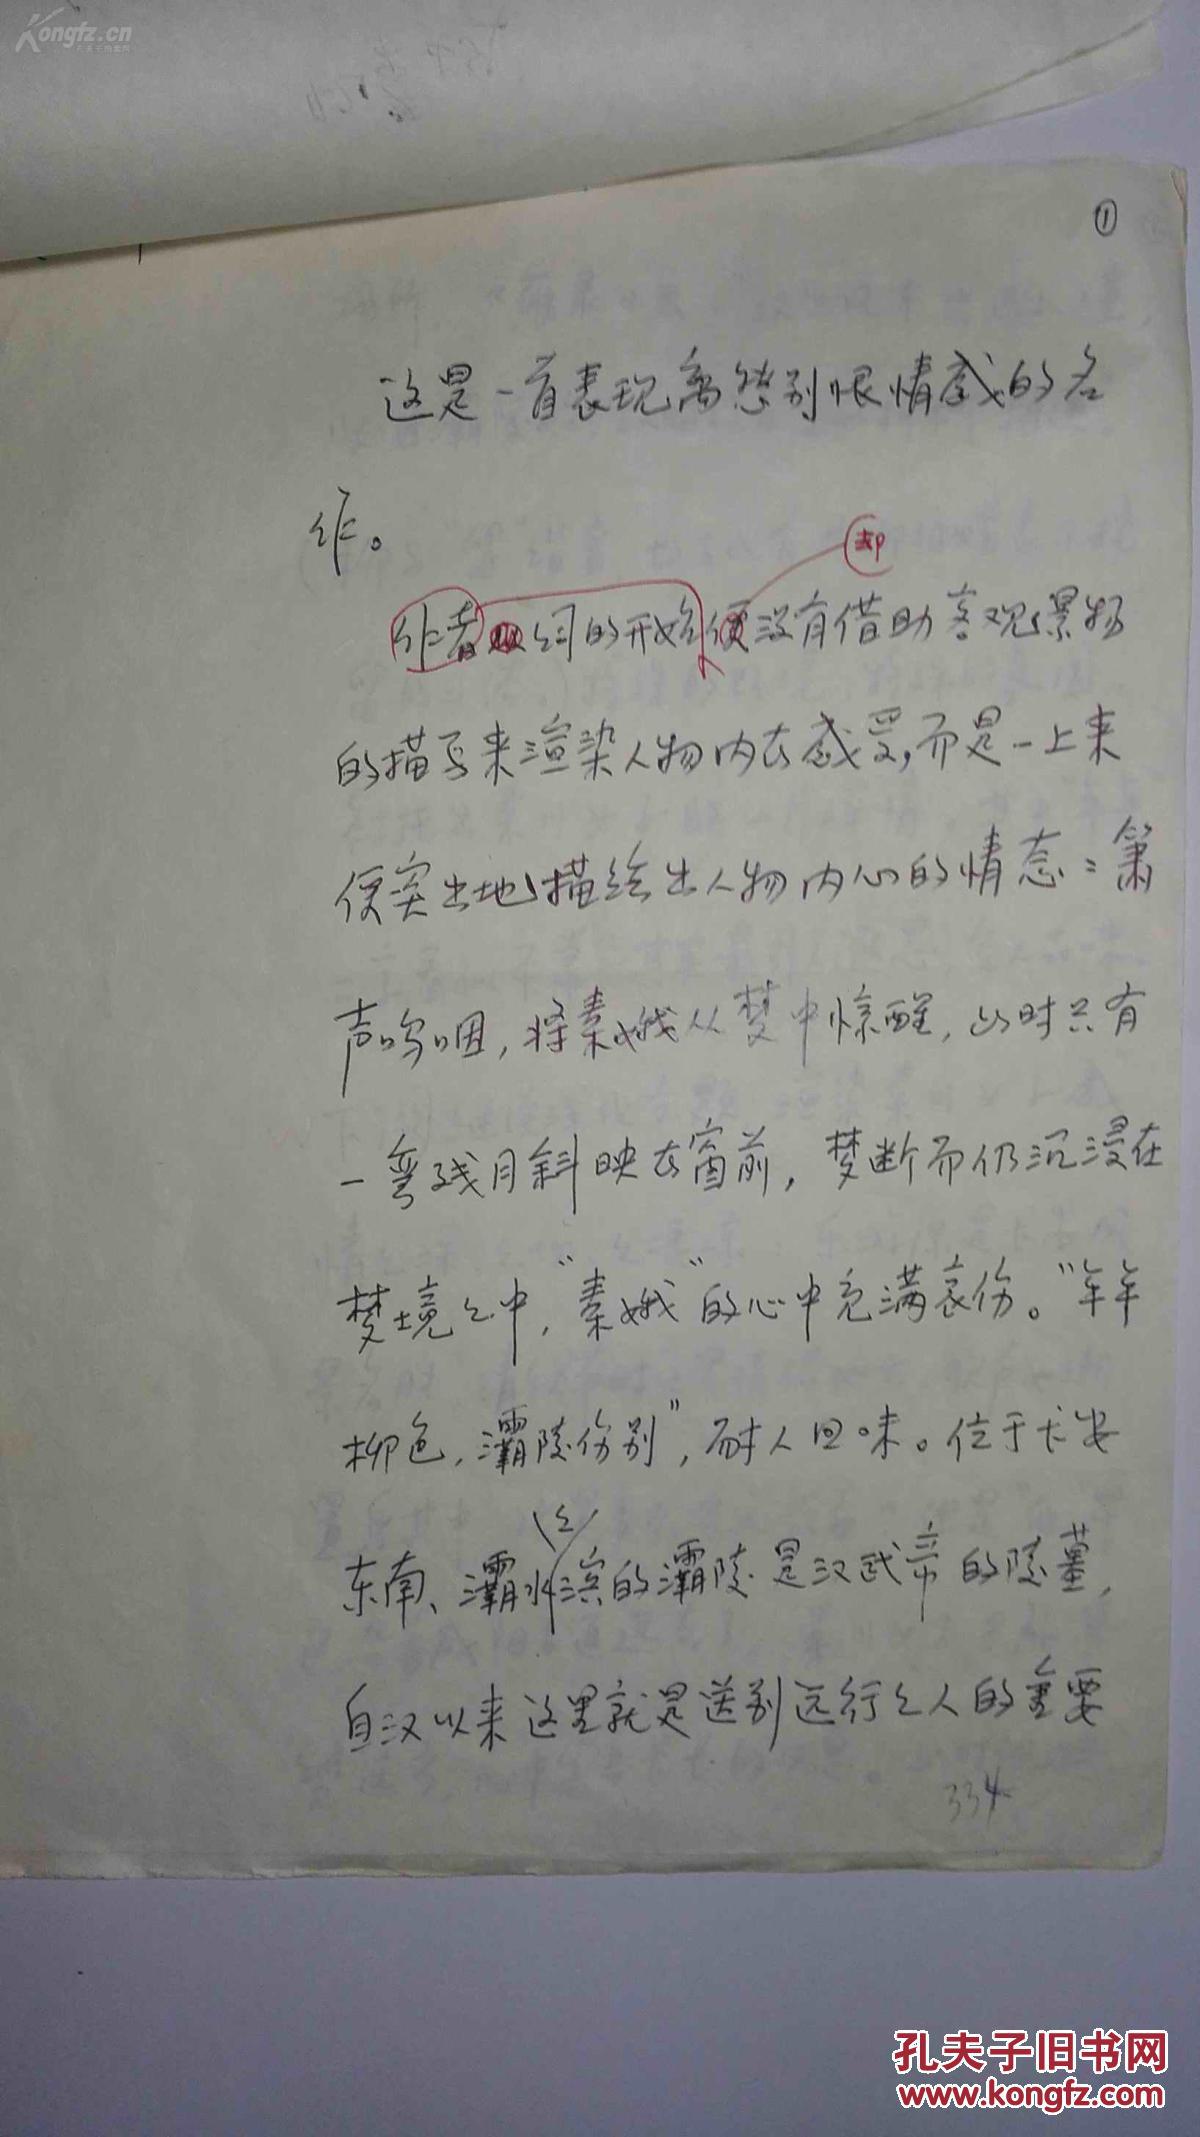 Kongfz.cn
孔夫子旧书网
①
这是一首表现离愁别恨情感的名
作。
却
作者从词的开始便没有借助客观景物
的描写来渲染人物内在感受,而是一上来
便突出地描绘出人物内心的情态:箫
声呜咽,将秦娥从梦中惊醒,此时只有
一弯残月斜映在窗前,梦断而仍沉浸在
梦境之中,“秦娥”的心中充满哀伤。“年年
柳色,灞陵伤别”,耐人回味。位于长安
之
东南、灞水滨的灞陵是汉武帝的陵墓,
自汉以来这里就是送别远行之人的重要
334
孔夫子旧书网
www.kongfz.com